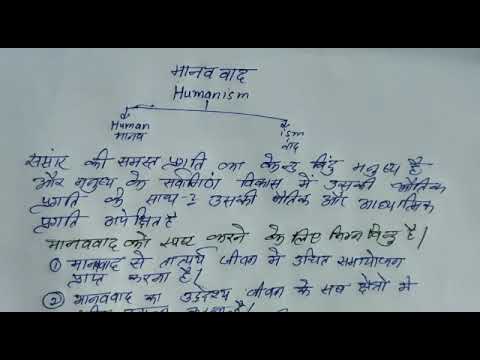 मानववाद
Humanism
Human ism
मानव वाद
संसार की समस्त प्रगति का केन्द्र बिंदु मनुष्य है
और मनुष्य के सर्वांगीण विकास में उसकी भौतिक
प्रगति के साथ-2 उसकी नैतिक और आध्यात्मिक
प्रगति अपेक्षित है
मानववाद को स्पष्ट करने के लिए निम्न बिन्दु है।
① मानववाद से तात्पर्य जीवन में उचित समायोजन
प्राप्त करना है।
② मानववाद का उद्देश्य जीवन के सब क्षेत्रों में